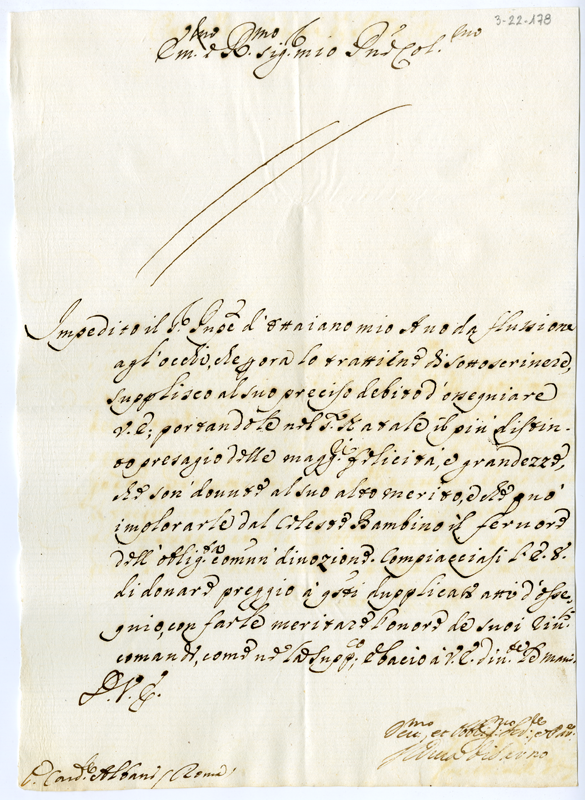 3-22-178
Em.mo e R.mo Sig.r mio Pne Col.mo
Impedito il S.r Pnpe d'Ottaiano mio Avo da flussione
agl'occhi, che p ora lo trattiene di sottoscrivere,
supplisco al suo preciso debito d'ossequiare
V.E; portandole nel S. Natale il più distin-
to presagio delle magg.ri felicità, e grandezze,
che son' dovute al suo alto merito, e che può
implorarle dal Celeste Bambino il fervore
dell'oblig.ma comun' divozione. Compiacciasi l'E.V.
di donare preggio à q.sti duplicati atti d'osse-
quio, con farle meritare l'onore de suoi riv.ti
comandi, come ne la supp.co, e bacio à V.E. div.te le mani
D.V.E.
Dev.mo et Obblig.mo
S.r Card.le Albani (Roma)